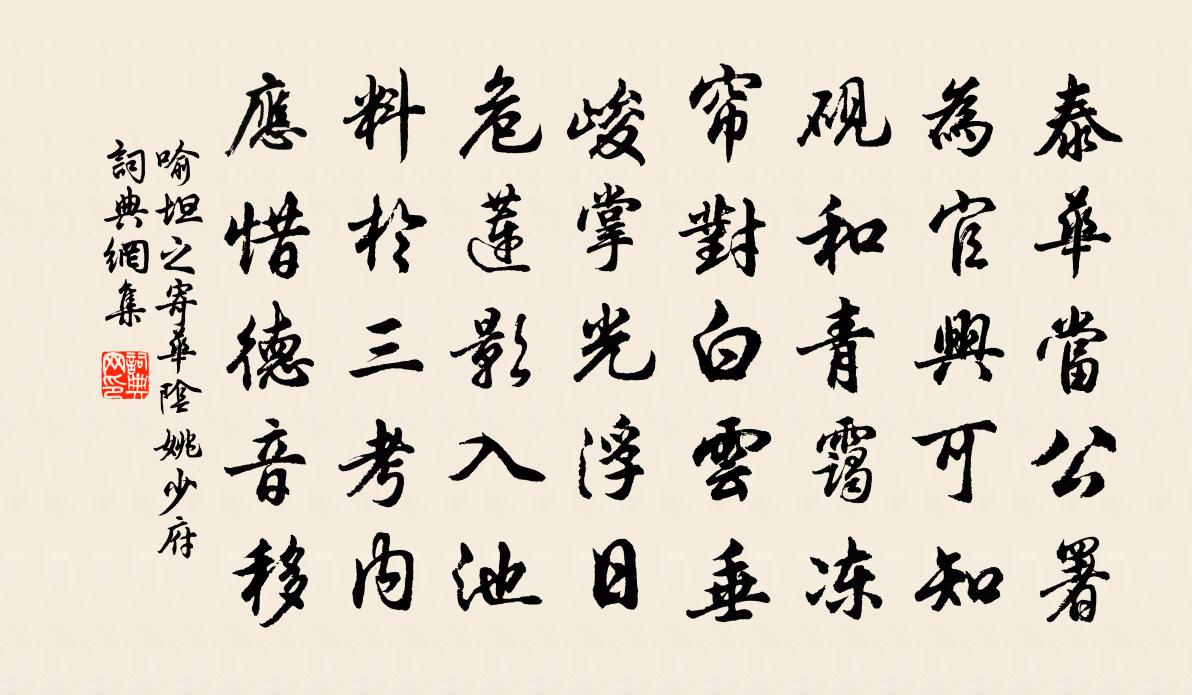 泰華當公署
為官興可知
硯和青靄凍
帘對白雲垂
峻掌光浮日
危蓮影入池
料於三考內
應惜德音移
喻坦之寄華陰姚少府
詞典網集
詞典网印